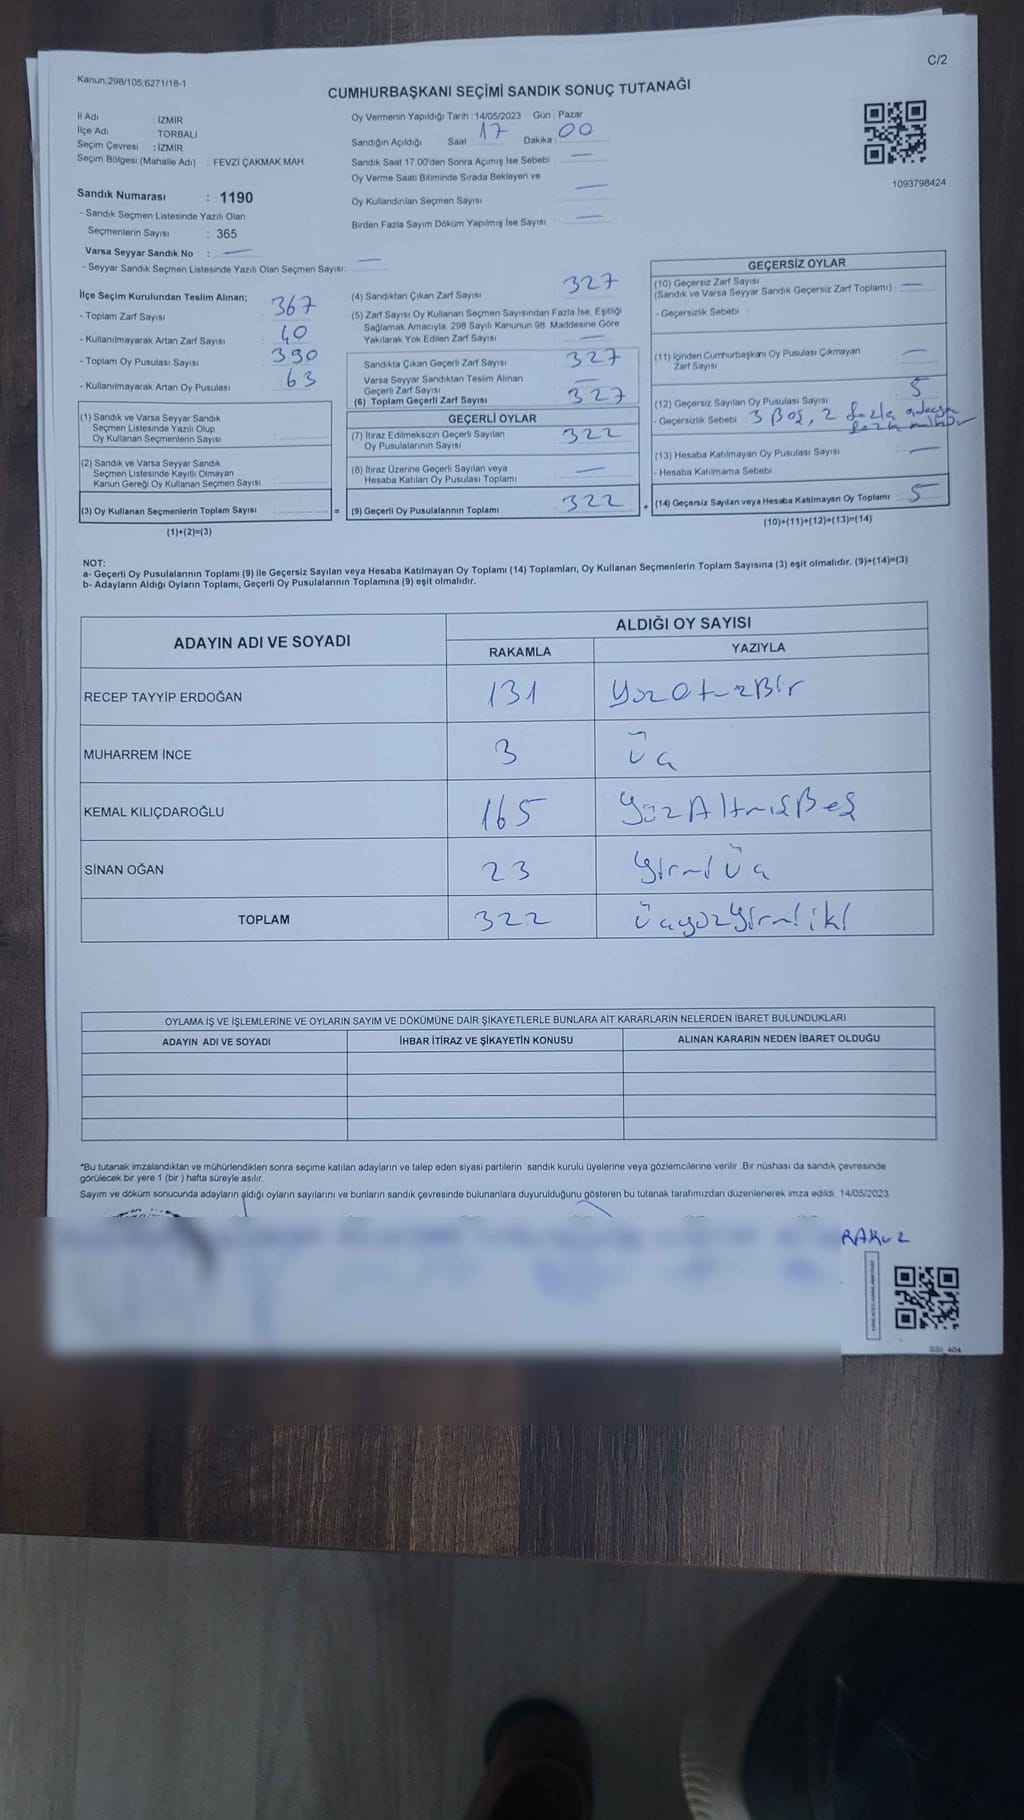 C/2
Kanun:298/105;6271/18-1
CUMHURBAŞKANI SEÇİMİ SANDIK SONUÇ TUTANAĞI
İl Adı : İZMİR
İlçe Adı : TORBALI
Seçim Çevresi : İZMİR
Seçim Bölgesi (Mahalle Adı) : FEVZİ ÇAKMAK MAH.
Sandık Numarası : 1190
- Sandık Seçmen Listesinde Yazılı Olan
Seçmenlerin Sayısı : 365
Varsa Seyyar Sandık No : —
- Seyyar Sandık Seçmen Listesinde Yazılı Olan Seçmen Sayısı: —
Oy Vermenin Yapıldığı Tarih : 14/05/2023 Gün : Pazar
Sandığın Açıldığı Saat : 17 Dakika : 00
Sandık Saat 17.00'den Sonra Açımış İse Sebebi : —
Oy Verme Saati Bitiminde Sırada Bekleyen ve
Oy Kullandırılan Seçmen Sayısı : —
Birden Fazla Sayım Döküm Yapılmış İse Sayısı : —
1093798424
İlçe Seçim Kurulundan Teslim Alınan;
- Toplam Zarf Sayısı : 367
- Kullanılmayarak Artan Zarf Sayısı : 40
- Toplam Oy Pusulası Sayısı : 390
- Kullanılmayarak Artan Oy Pusulası : 63
(1) Sandık ve Varsa Seyyar Sandık
Seçmen Listesinde Yazılı Olup
Oy Kullanan Seçmenlerin Sayısı :
(2) Sandık ve Varsa Seyyar Sandık
Seçmen Listesinde Kayıtlı Olmayan
Kanun Gereği Oy Kullanan Seçmen Sayısı :
(3) Oy Kullanan Seçmenlerin Toplam Sayısı : =
(1)+(2)=(3)
(4) Sandıktan Çıkan Zarf Sayısı : 327
(5) Zarf Sayısı Oy Kullanan Seçmen Sayısından Fazla İse, Eşitliği
Sağlamak Amacıyla, 298 Sayılı Kanunun 98. Maddesine Göre
Yakılarak Yok Edilen Zarf Sayısı : —
Sandıkta Çıkan Geçerli Zarf Sayısı : 327
Varsa Seyyar Sandıktan Teslim Alınan
Geçerli Zarf Sayısı : —
(6) Toplam Geçerli Zarf Sayısı : 327
GEÇERLİ OYLAR
(7) İtiraz Edilmeksizin Geçerli Sayılan
Oy Pusulalarının Sayısı : 322
(8) İtiraz Üzerine Geçerli Sayılan veya
Hesaba Katılan Oy Pusulası Toplamı : —
(9) Geçerli Oy Pusulalarının Toplamı : 322 +
GEÇERSİZ OYLAR
(10) Geçersiz Zarf Sayısı
(Sandık ve Varsa Seyyar Sandık Geçersiz Zarf Toplamı) : —
- Geçersizlik Sebebi :
(11) İçinden Cumhurbaşkanı Oy Pusulası Çıkmayan
Zarf Sayısı : —
(12) Geçersiz Sayılan Oy Pusulası Sayısı : 5
- Geçersizlik Sebebi : 3 Boş, 2 fazla adaya
fazla mühür
(13) Hesaba Katılmayan Oy Pusulası Sayısı : —
- Hesaba Katılmama Sebebi :
(14) Geçersiz Sayılan veya Hesaba Katılmayan Oy Toplamı : 5
(10)+(11)+(12)+(13)=(14)
NOT:
a- Geçerli Oy Pusulalarının Toplamı (9) ile Geçersiz Sayılan veya Hesaba Katılmayan Oy Toplamı (14) Toplamları, Oy Kullanan Seçmenlerin Toplam Sayısına (3) eşit olmalıdır. (9)+(14)=(3)
b- Adayların Aldığı Oyların Toplamı, Geçerli Oy Pusulalarının Toplamına (9) eşit olmalıdır.
ADAYIN ADI VE SOYADI ALDIĞI OY SAYISI
RAKAMLA YAZIYLA
RECEP TAYYİP ERDOĞAN 131 YüzOtuzBir
MUHARREM İNCE 3 Üç
KEMAL KILIÇDAROĞLU 165 YüzAltmışBeş
SİNAN OĞAN 23 YirmiÜç
TOPLAM 322 Üçyüzyirmiiki
OYLAMA İŞ VE İŞLEMLERİNE VE OYLARIN SAYIM VE DÖKÜMÜNE DAİR ŞİKAYETLERLE BUNLARA AİT KARARLARIN NELERDEN İBARET BULUNDUKLARI
ADAYIN ADI VE SOYADI İHBAR İTİRAZ VE ŞİKAYETİN KONUSU ALINAN KARARIN NEDEN İBARET OLDUĞU
*Bu tutanak imzalandıktan ve mühürlendikten sonra seçime katılan adayların ve talep eden siyasi partilerin sandık kurulu üyelerine veya gözlemcilerine verilir .Bir nüshası da sandık çevresinde
görülecek bir yere 1 (bir ) hafta süreyle asılır.
Sayım ve döküm sonucunda adayların aldığı oyların sayılarını ve bunların sandık çevresinde bulunanlara duyurulduğunu gösteren bu tutanak tarafımızdan düzenlenerek imza edildi. 14/05/2023
SSI_404